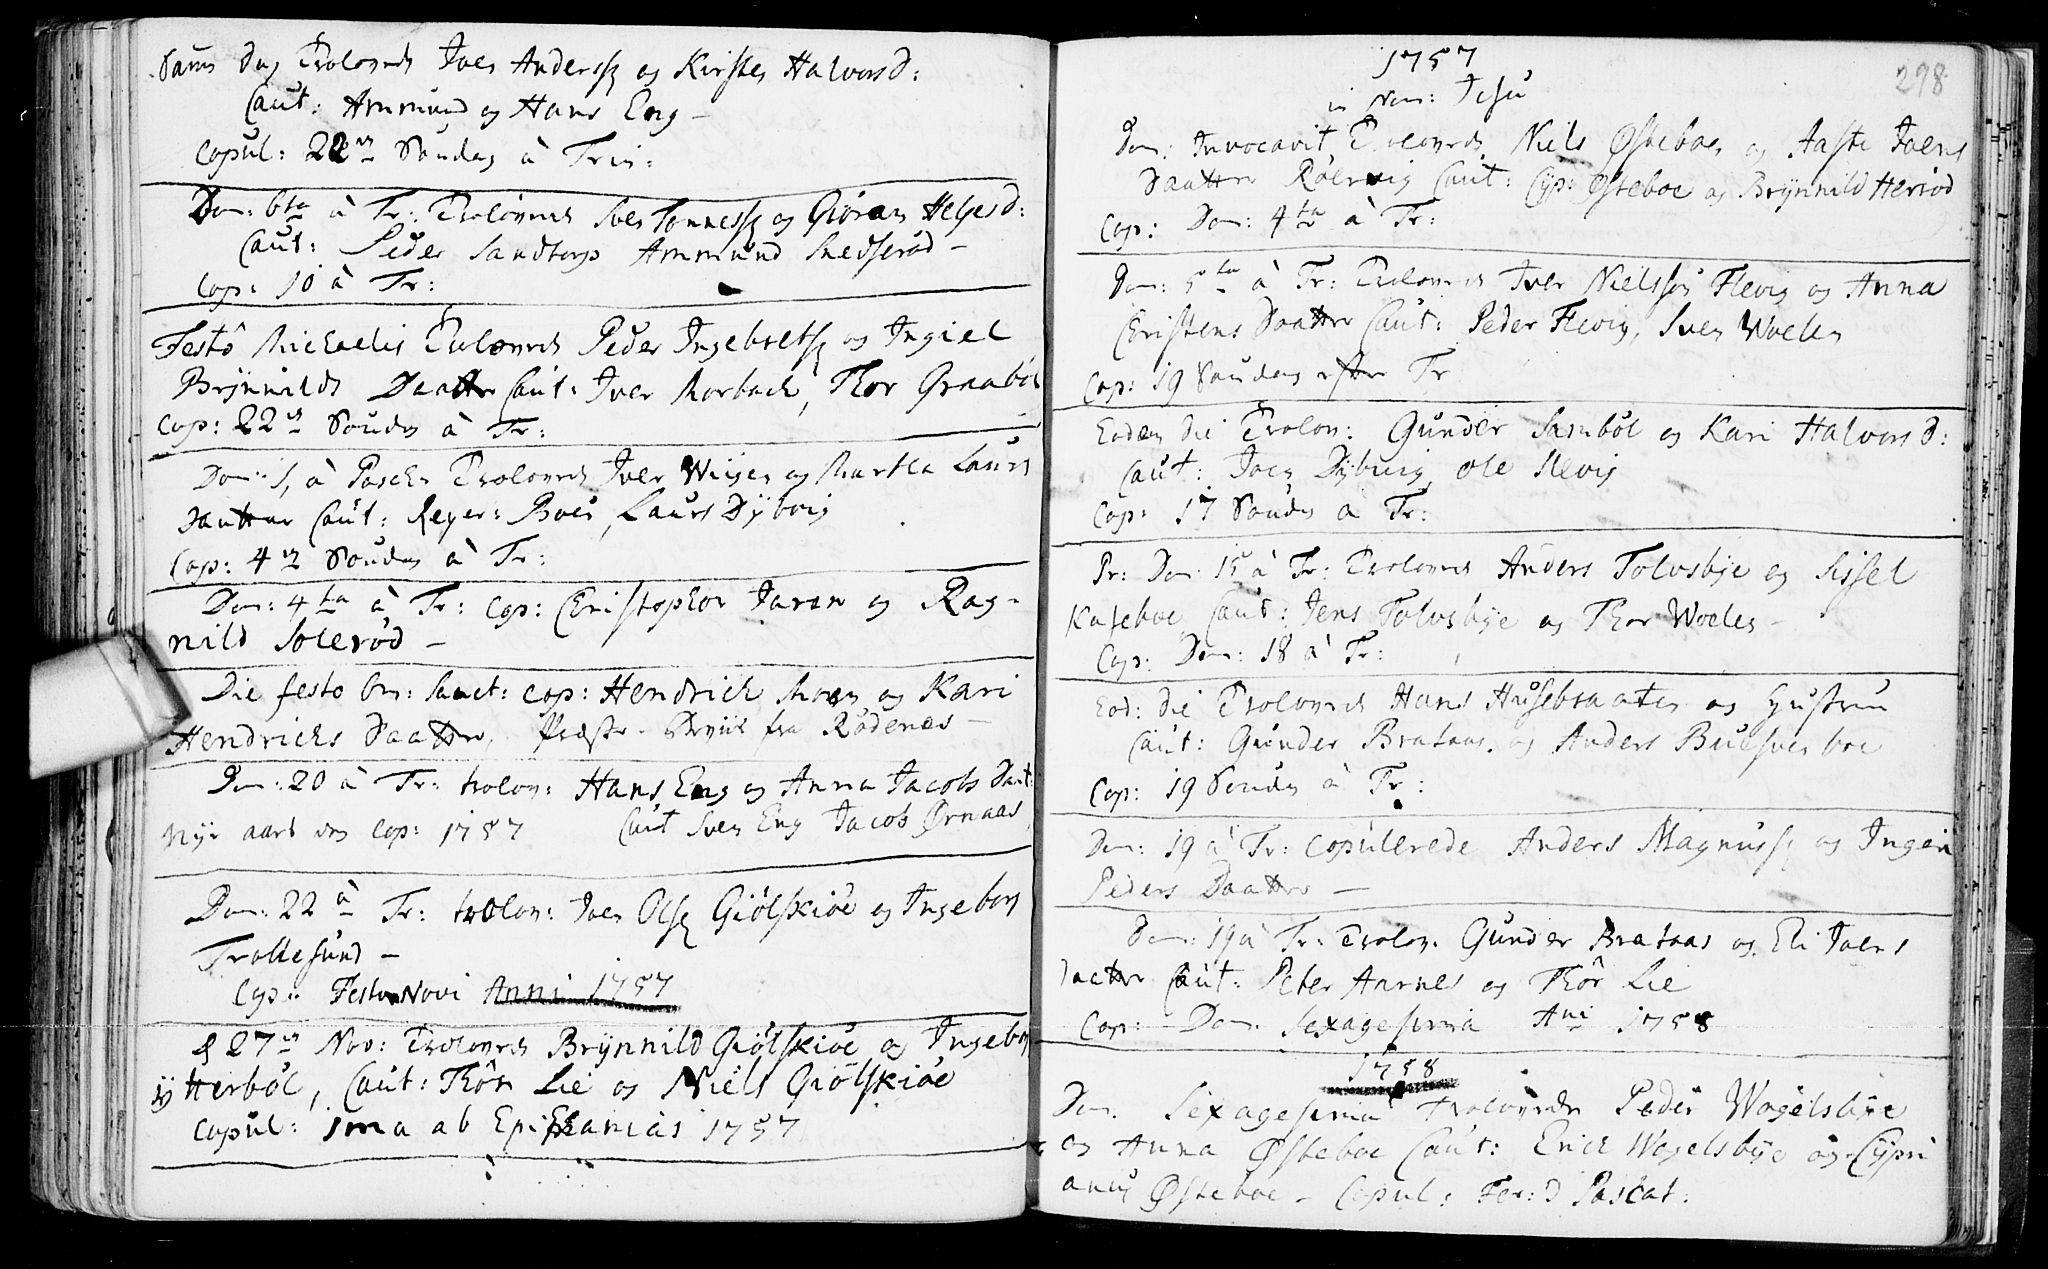 Samme Dag Trolovede Joen Anderss: og Kirsten Halvorsd:
Caut: Ammund og Hans Eng -
Copul: 22de Søndag à Trin:
Dom: 6ta à Tr: Trolovede Sven Tønness: og Giøran Helgesd:
Caut: Peder Sandtorp Ammund Snedserød -
Cop: 10 à Tr:
Festô Michaelis Trolovede Peder Ingebretss: og Ingiel
Brÿnnilds Daatter Caut: Iver Morbech, Thor Graabøl
Cop: 22de Søndag à Tr:
Dom: 1, à Pasch: Trolovede Iver Wiigen og Martha Laurs
Daatter Caut: Reyer: Boer, Laurs Dÿbvig
Cop: 4de Søndag à Tr:
Dom: 4ta à Tr: Cop: Christopher Jaren og Rag-
nild Solerød -
Die festo Om: Sanct: cop: Hendrich Moen og Kari
Hendrichs Daatter, fra Rødenæs -
Dom: 20 à Tr: trolov: Hans Eng og Anna Jacobs Daat:
Nÿe aars dag Cop: 1757 Caut Sven Eng Jacob Ørnaas
Dom: 22 à Tr: trolov: Joen Olss: Giølskiøe og Ingeborg
Trollesund -
Cop: Festo Novi Anni 1757
d 27de Nov: Trolovede Brÿnnild Giølskiøe og Ingeborg
Ÿtterbøl, Caut: Thôr Lie og Niels Giølskiøe
Copul: 1ma ab Epiphanias 1757
1757
in Nom: Jesu
298
Dom: Invocavit Trolovede Niels Østeboe og Aaste Joens
Daatter Røervig Caut: Cÿp: Østeboe og Brÿnnild Heriød
Cop: Dom: 4ta à Tr:
Dom: 5ta à Tr: Trolovede Iver Nielssøn Flevig og Anna
Christens Daatter Caut: Peder Flevig, Sven Woelen
Cop: 19 Søndag efter Tr
Eodem die Trolov: Gunder Sambøl og Kari Halvorsd:
Caut: Joen Dÿbvig, Ole Slevig
Cop: 17 Søndag à Tr:
Pr: Dom: 15 à Tr: Trolovede Anders Tolvsbÿe og Sissel
Kaseboe Caut: Jens Tolvsbÿe og Thor Woelen -
Cop: Dom: 18 à Tr:
Eod: die Trolovede Hans Husebraaten og Hustru
Caut: Gunder Brataas og Anders Buesverboe
Cop: 19 Søndag à Tr:
Dom: 19 à Tr: copulerede Anders Magnuss: og Ingeri
Peders Daatter —
Dom: 19 à Tr: Trolov. Gunder Brataas og Eli Joens
Daatter Caut: Peter Aarnes og Thôr Lie
Cop: Dom: Sexagesima Ani 1758
1758
Dom. Sexagesima Trolovede Peder Wogelsbÿe
og Anna Østeboe Caut: Erich Wogelsbÿe og Cÿpri
anus Østeboe - Copul: Fer: 3 Paschat: